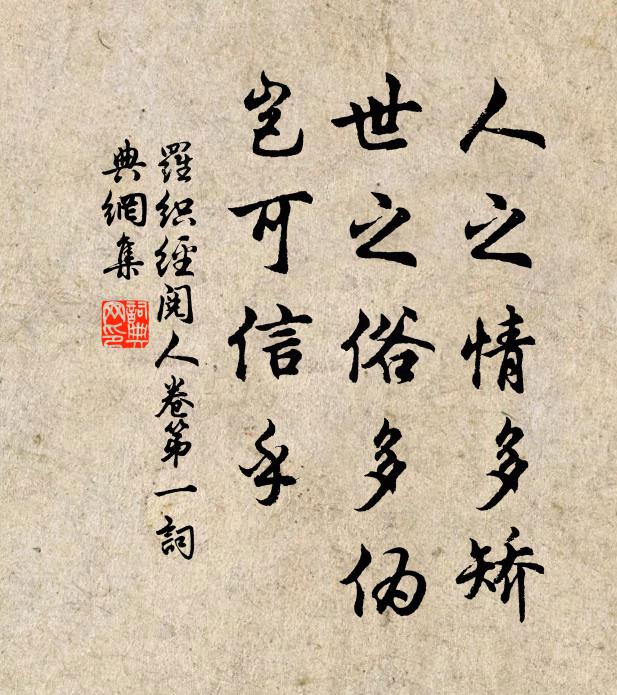 人之情多矫
世之俗多伪
岂可信乎
羅织經阅人卷第一詞
典網集
詞典
网印